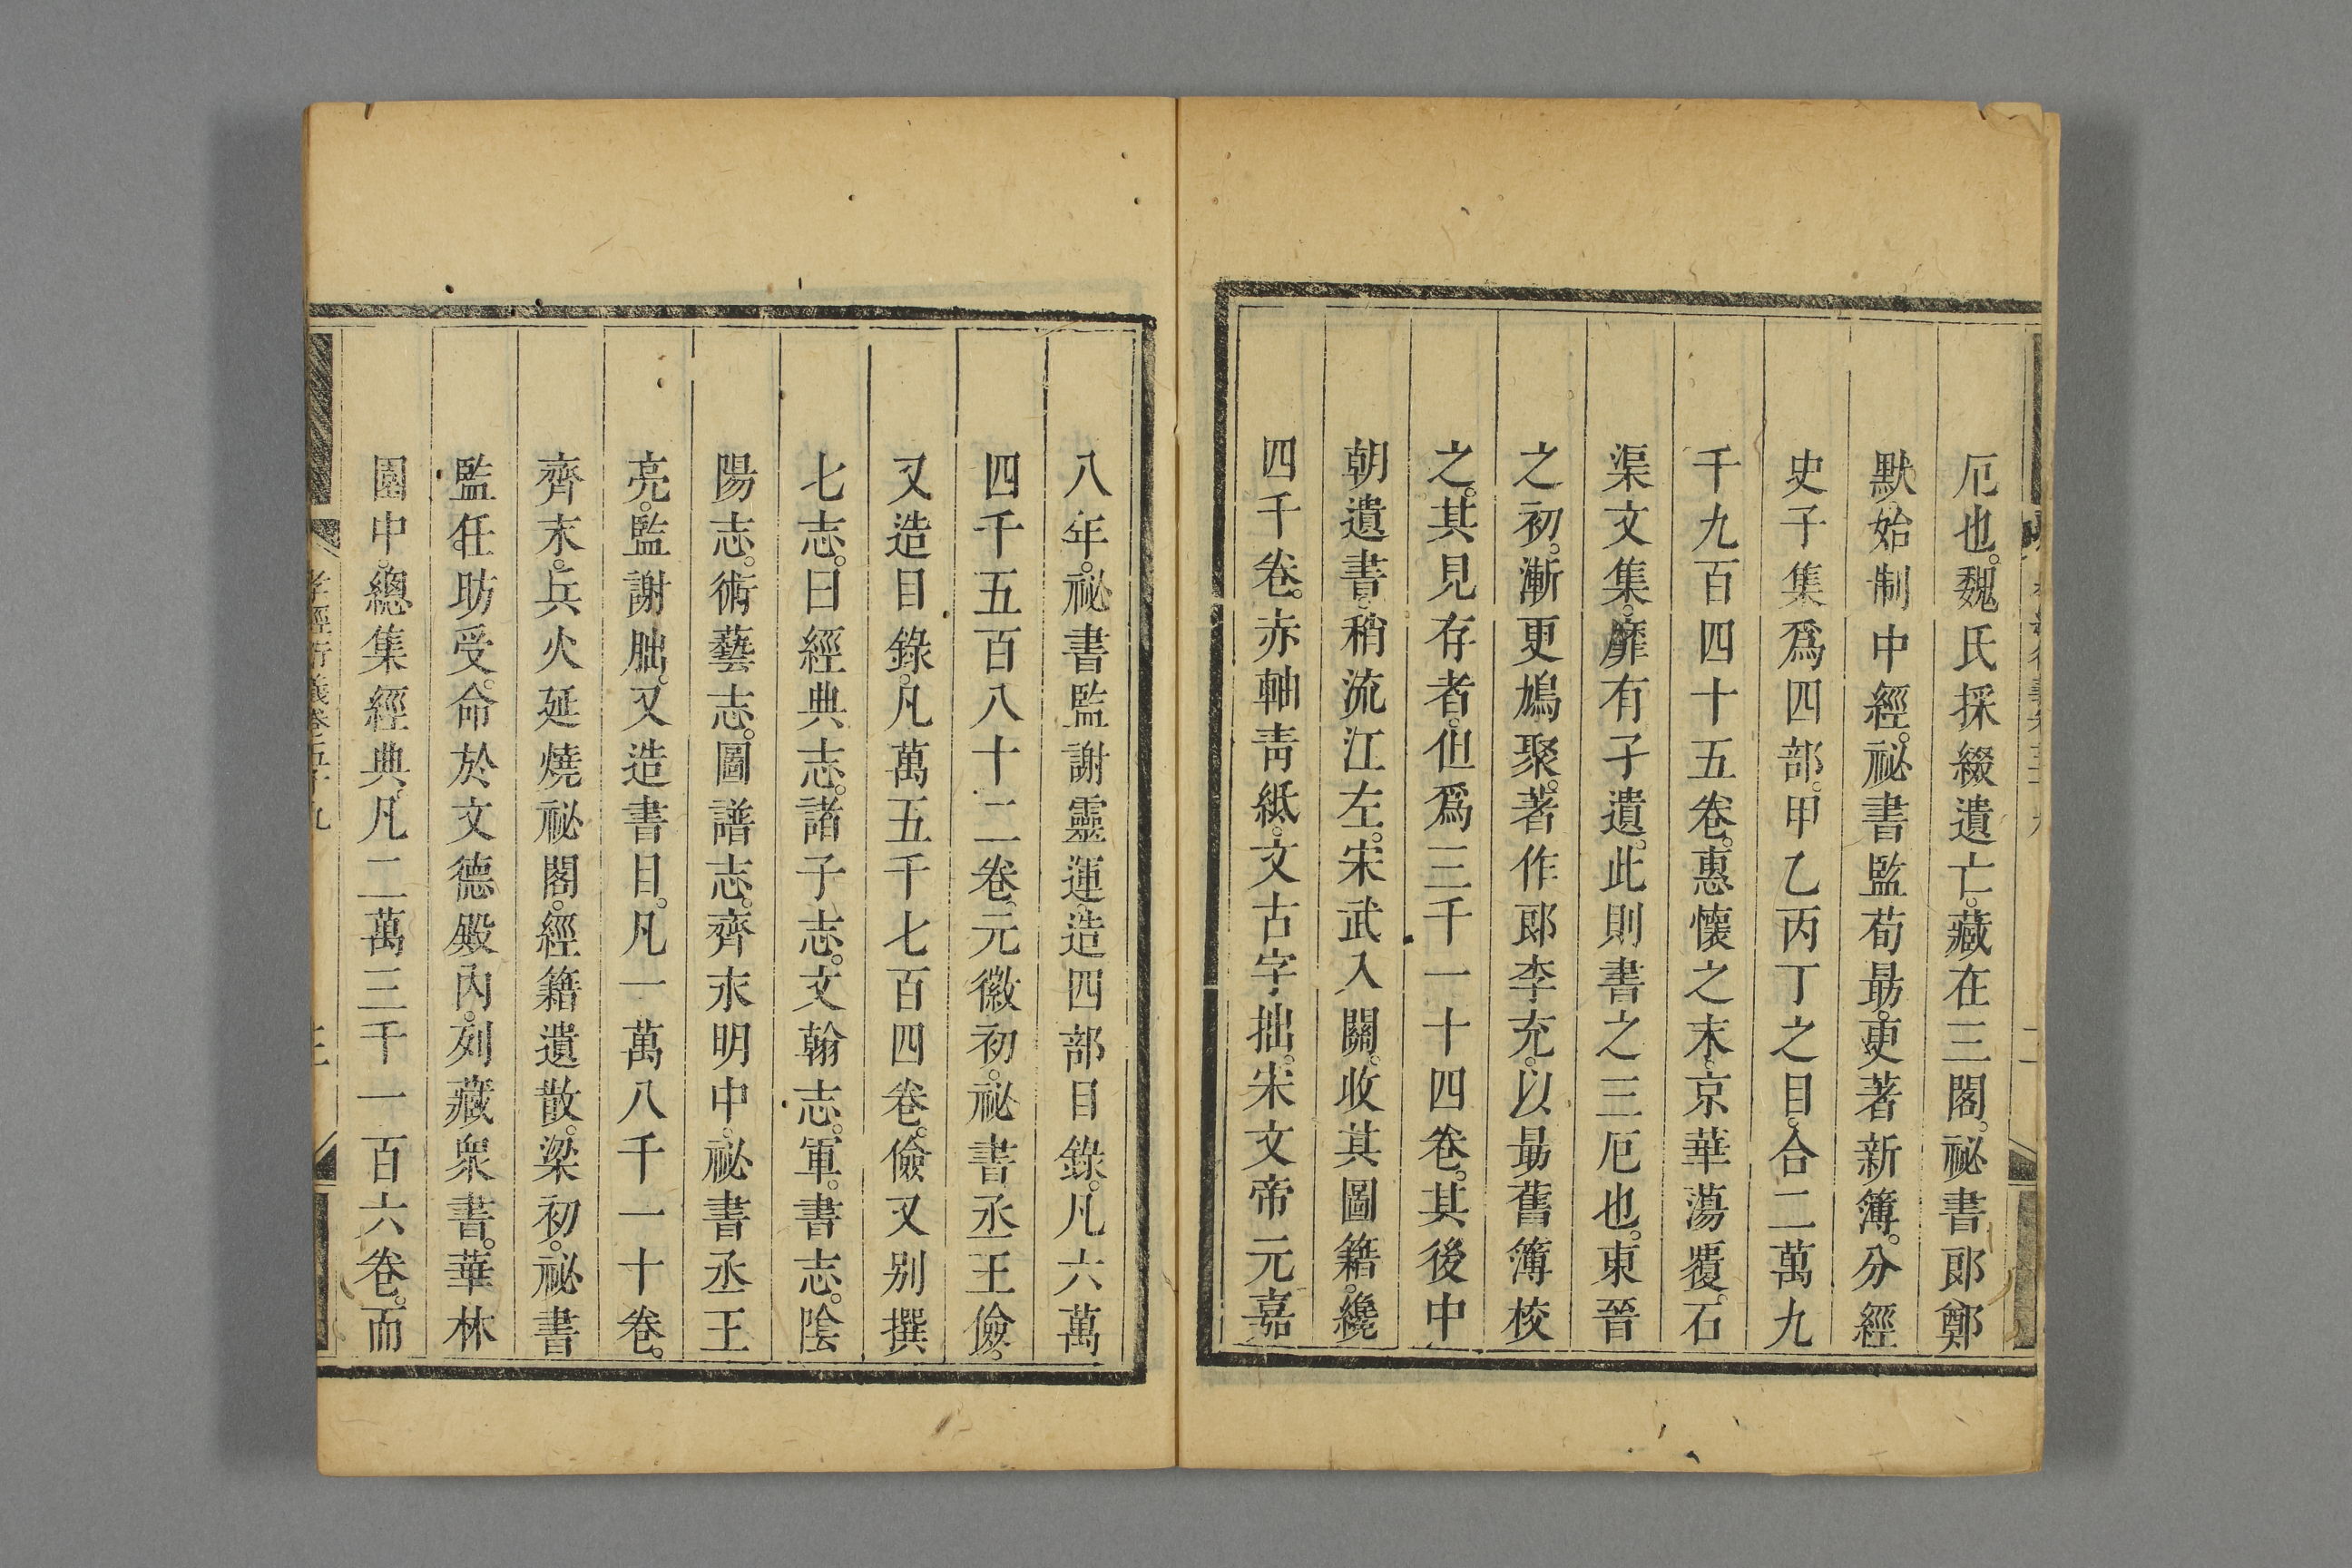 厄也。魏氏採綴遺亡。藏在三閣。祕書郎鄭
默始制中經。祕書監荀勗。更著新簿。分經
史子集爲四部。甲乙丙丁之目。合二萬九
千九百四十五卷。惠懷之末。京華蕩覆。石
渠文集。靡有孑遺。此則書之三厄也。東晉
之初。漸更鳩聚。著作郎李充。以勗舊簿校
之。其見存者。但爲三千一十四卷。其後中
朝遺書。稍流江左。宋武入關。收其圖籍。纔
四千卷。赤軸青紙。文古字拙。宋文帝元嘉
八年。祕書監謝靈運造四部目錄。凡六萬
四千五百八十二卷。元徽初。祕書丞王儉。
又造目錄。凡萬五千七百四卷。儉又别撰
七志。曰經典志。諸子志。文翰志。軍。書志。陰
陽志。術藝志。圖譜志。齊末明中。祕書丞王
亮。監謝朏。又造書目。凡一萬八千一十卷。
齊末。兵火延燒祕閣。經籍遺散。梁初。祕書
監任昉受。命於文德殿內。列藏衆書。華林
園中。總集經典。凡二萬三千一百六卷。而
孝經衍義卷五十九
三